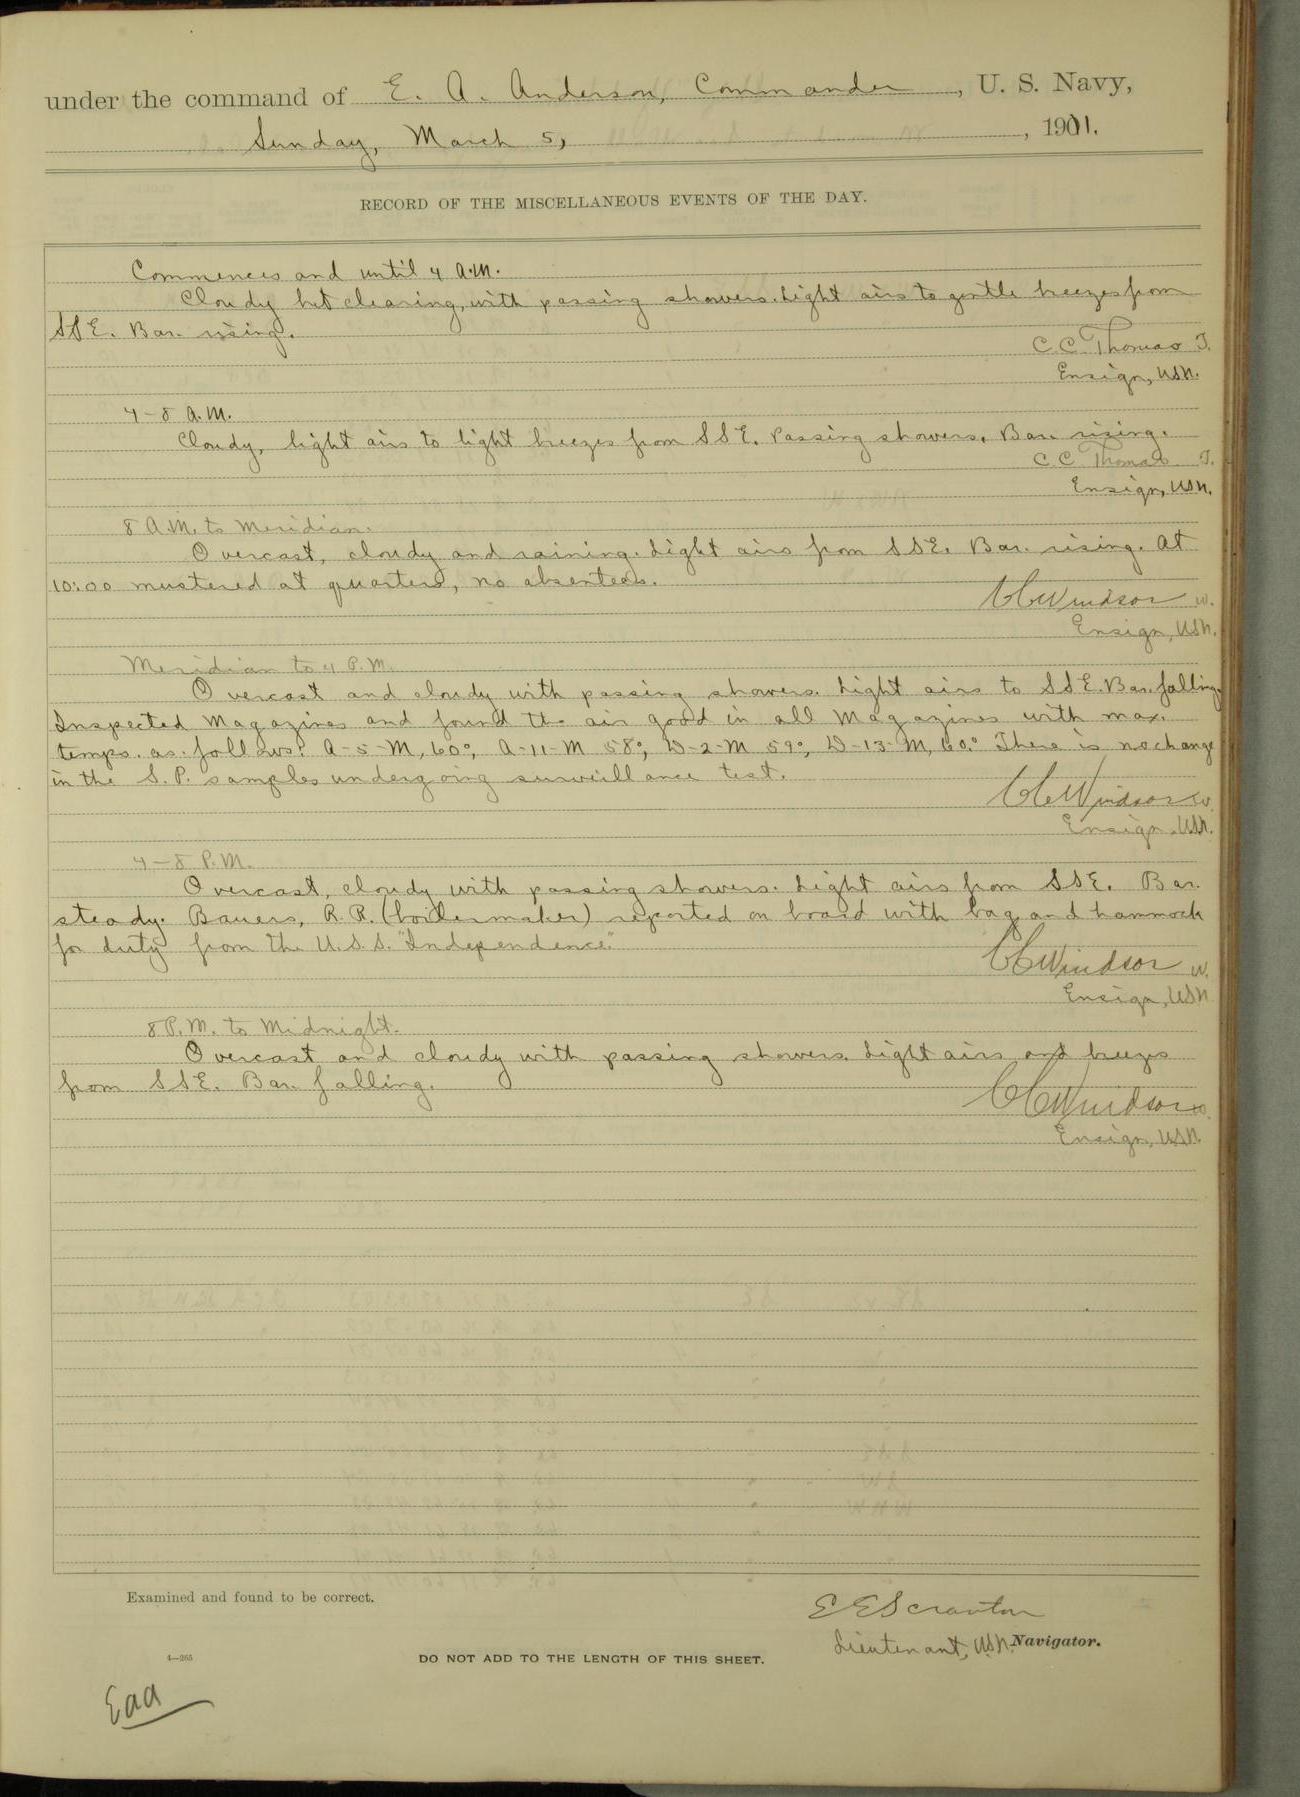 under the command of E. A. Anderson, Commander, U. S. Navy,
Sunday, March 5, 1911.
RECORD OF THE MISCELLANEOUS EVENTS OF THE DAY.
Commences and until 4 A.M.
Cloudy but clearing, with passing showers. Light airs to gentle breezes from
SSE. Bar. rising.
C. C. Thomas J.
Ensign, USN.
4-8 A.M.
Cloudy, light airs to light breezes from SSE. Passing showers. Bar. rising.
C C Thomas J.
Ensign, USN.
8 A.M. to Meridian.
Overcast, cloudy and raining. Light airs from SSE. Bar. rising. At
10:00 mustered at quarters, no absentees.
CCWindsor w.
Ensign, USN.
Meridian to 4 P.M.
Overcast and cloudy with passing showers. Light airs to SSE. Bar. falling.
Inspected Magazines and found the air good in all Magazines with max.
temps. as follows: A-5-M, 60°, A-11-M 58°, D-2-M 59°, D-13-M, 60.° There is no change
in the S.P. samples undergoing surveillance test.
CCWindsor w.
Ensign, USN.
4-8 P.M.
Overcast, cloudy with passing showers. Light airs from SSE. Bar.
steady. Bauers, R.R. (boilermaker) reported on board with bag and hammock
for duty from the U.S.S. "Independence."
CCWindsor w.
Ensign, USN
8 P.M. to Midnight.
Overcast and cloudy with passing showers. Light airs and breezes
from SSE. Bar. falling.
CCWindsor w.
Ensign, USN.
Examined and found to be correct.
E E Scranton
Lieutenant, USN. Navigator.
4—265
DO NOT ADD TO THE LENGTH OF THIS SHEET.
Eaa